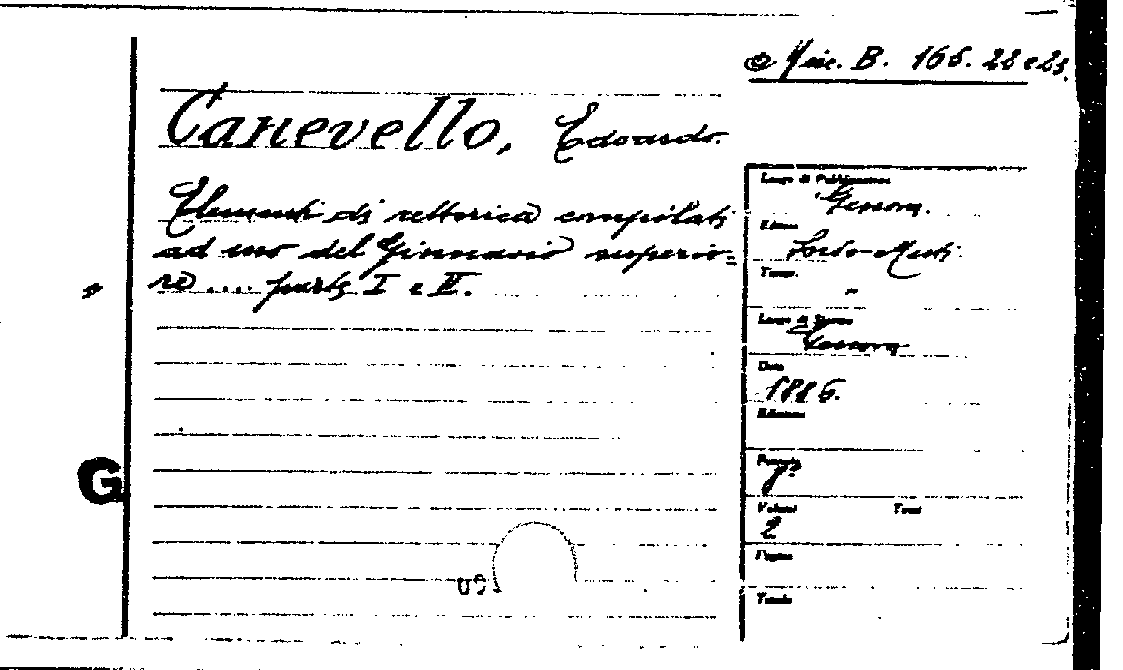 Misc. B. 166. 22 e 23.
Canevello, Edoardo.
Elementi di rettorica compilati
ad uso del Ginnasio superio=
re .... parte I e II.
Luogo di Pubblicazione
Genova.
Sordo-Muti.
Luogo di Stampa
Genova
Data
1886.
Edizione
Formato
8º
Volumi Tomi
2
Pagine
Tavole
G